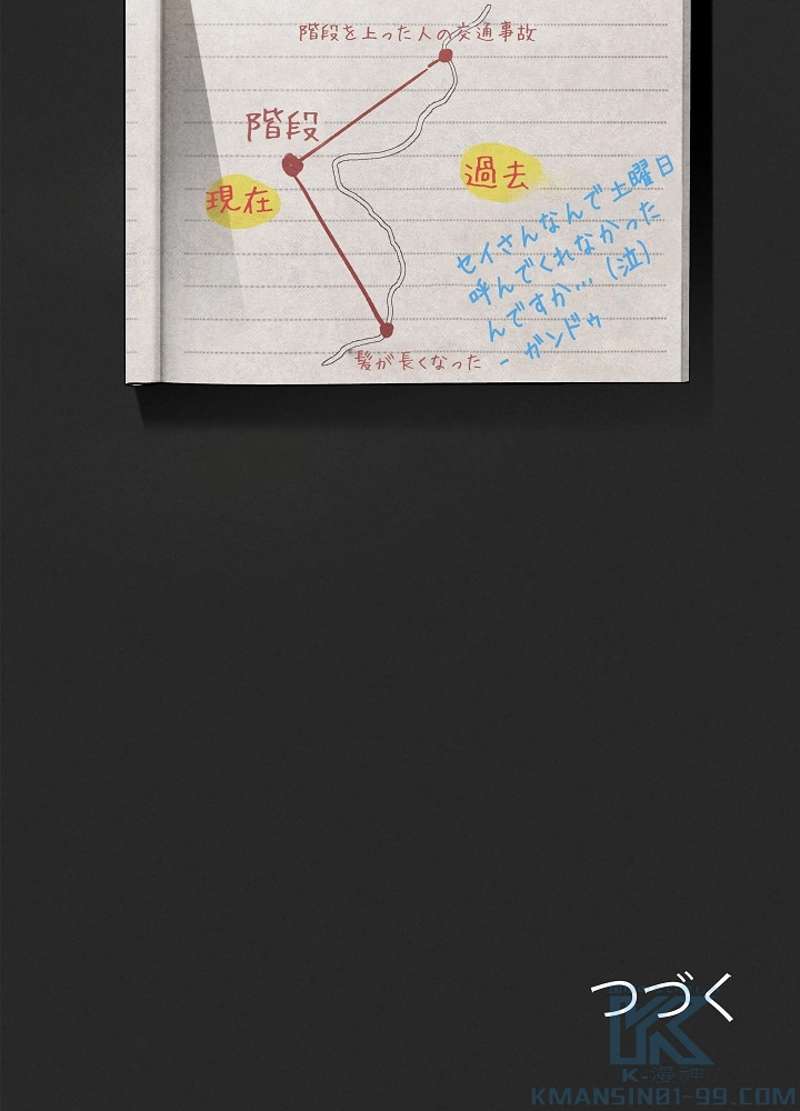 階段を上った人の交通事故
階段
現在
過去
セイさんなんで土曜日
呼んでくれなかった
んですか…（泣）
- ガンドゥ
髪が長くなった
つづく
K-漫神
KMANSIN01-99.COM